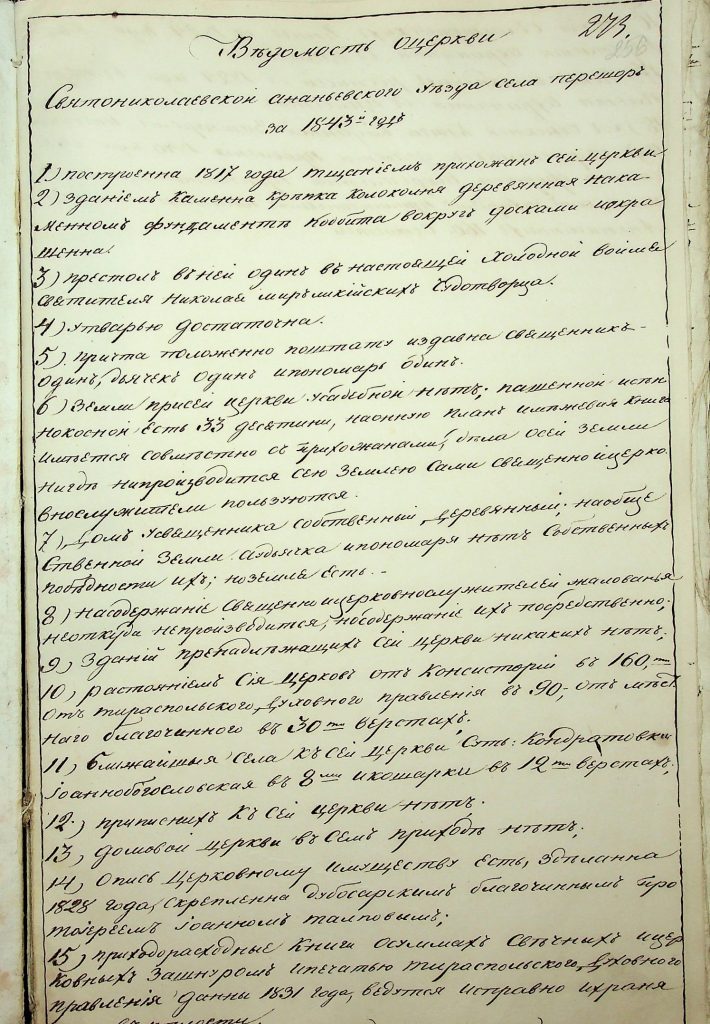 273.
Вѣдомость оцеркви
Святониколаевской ананьевскаго уѣзда села перешоръ
за 1843й годъ
1) построенна 1817 года тщаніемъ прихожанъ Сей церкви
2) зданіемъ каменна крѣпка колокольня деревянная нака-
менномъ фундаментѣ иоббита вокругъ досками икра
шенна.
3) престолъ вней одинъ внастоящей холодной воимя
святителя Николая миръликійскихъ Чудотворца.
4) утварью достаточна.
5) причта положенно поштату издавна священникъ-
одинъ, дьячекъ одинъ ипономарь Одинъ.
6) Земли присей церкви усадебной нѣтъ; пашенной исѣн
нокосной есть 33 десятины, наонную планъ имѣжевая книга
имѣется совмѣстно съ прихожанами, дѣла осей земли
нигдѣ непроизводится сею землею Сами священноицерко
внослужители пользуются.
7) домъ усвященника собственный деревянный; наобще
ственной земли. Аудьячка ипономаря нѣтъ Собственныхъ
побѣдности ихъ; ноземля есть.-
8) Насодержаніе Священноицерковнослужителей жалованья
неоткуда непроизводится; носодержаніе ихъ посредственно;
9) Зданій принадлѣжащихъ сей церкви никакихъ нѣтъ;
10) растояніемъ Сія Церковь отъ Консисторіи въ 160,ти
отъ тираспольскаго духовнаго правленія въ 90-, отъ мѣст
наго благочиннаго въ 30ти верстахъ;
11) ближайшыя села ксей церкви суть: Кондратовка
іоаннобогословская въ 8ми икошарки въ 12ти верстахъ;
12) приписныхъ ксей церкви нѣтъ.
13) домовой церкви всемъ приходѣ нѣтъ;
14) Опись церковному имуществу есть, здѣланна
1828 года, скрепленна дубосарскимъ благочиннымъ про
тоіереемъ іоанномъ талповымъ;
15) приходорасходные книги осуммахъ свѣчныхъ ицер
ковныхъ зашнуромъ ипечатью тираспольскаго духовнаго
правленія данны 1831 года, ведутся исправно ихраня